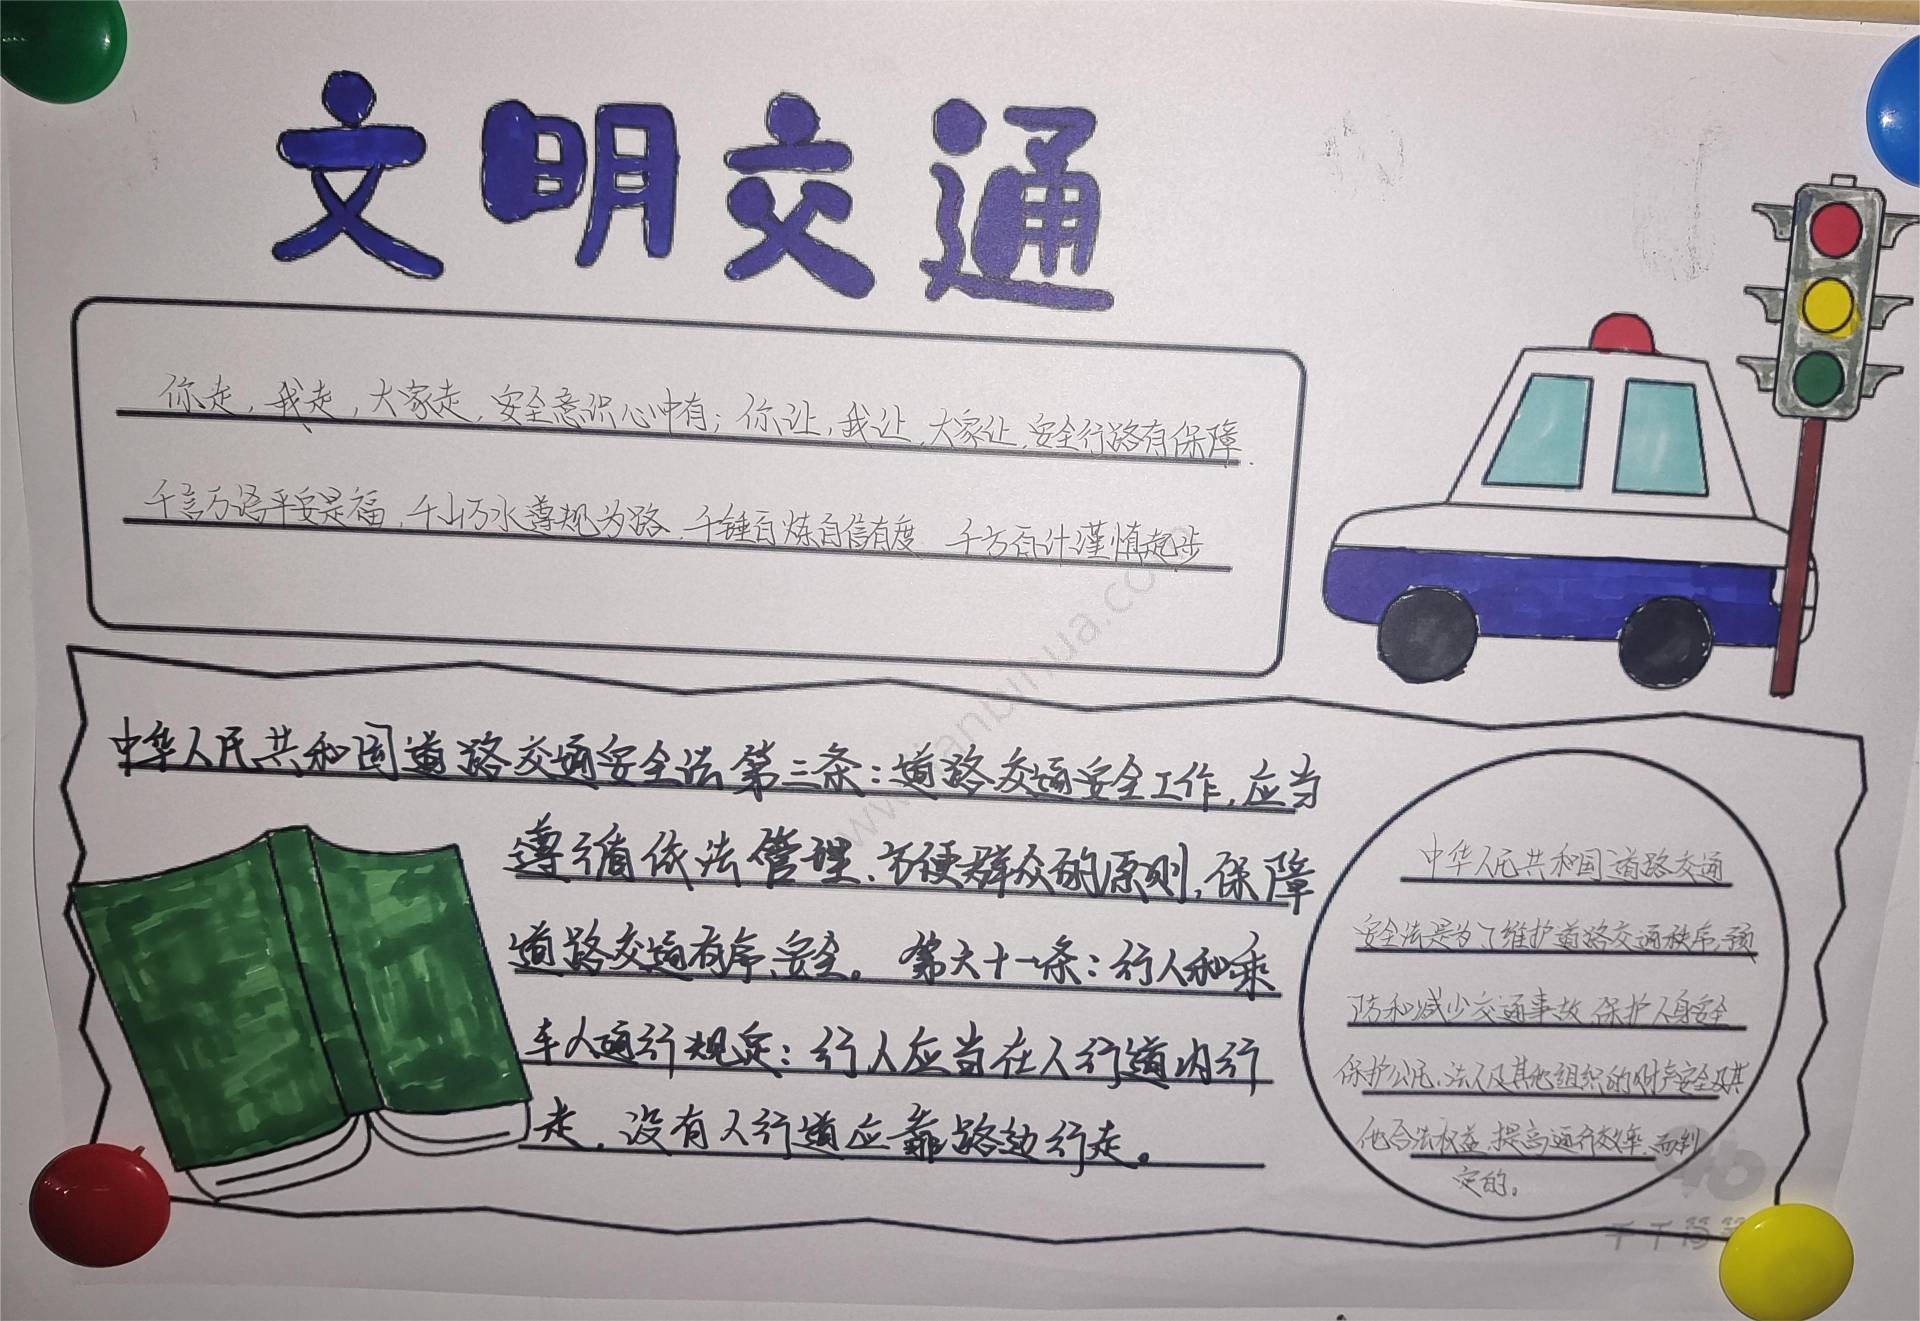 文明交通
你走，我走，大家走，安全意识心中有；你让，我让，大家让，安全行路有保障.
千言万语平安是福，千山万水遵规为路，千锤百炼自信有度 千方百计谨慎起步
中华人民共和国道路交通安全法第三条：道路交通安全工作，应当
遵循依法管理、方便群众的原则，保障
道路交通有序、安全。 第六十一条：行人和乘
车人通行规定：行人应当在人行道内行
走，没有人行道应靠路边行走。
中华人民共和国道路交通
安全法是为了维护道路交通秩序，预
防和减少交通事故，保护人身安全
保护公民、法人及其他组织的财产安全及其
他合法权益，提高通行效率，而制
定的。